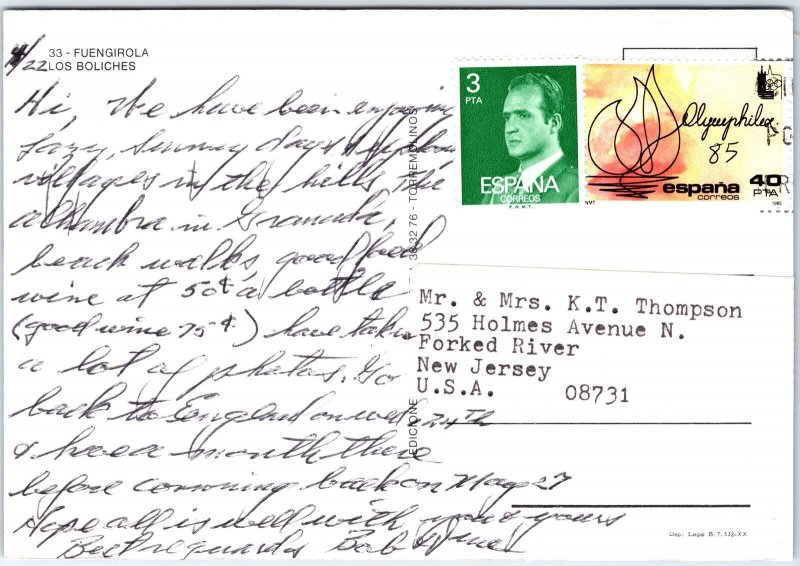 33 - FUENGIROLA
LOS BOLICHES
4/22
Hi, We have been enjoying
Lazy, Sunny days exploring
villages in the hills, the
alhambra in Granada,
beach walks, good food
wine at 50¢ a bottle
(good wine 75¢) have taken
a lot of photos. Go
back to England on wed. 24th
& have a month there
before comming back on May 27
Hope all is well with you & yours
Best reguards Bob &
3
PTA
ESPAÑA
CORREOS
F.N.M.T.
Olymphilex
85
españa
correos
40
PTA
NMT
1985
EDICIONE
38 32 76 - TORREMOLINOS
Mr. & Mrs. K.T. Thompson
535 Holmes Avenue N.
Forked River
New Jersey
U.S.A. 08731
Dep. Legal B. 7.512-XX